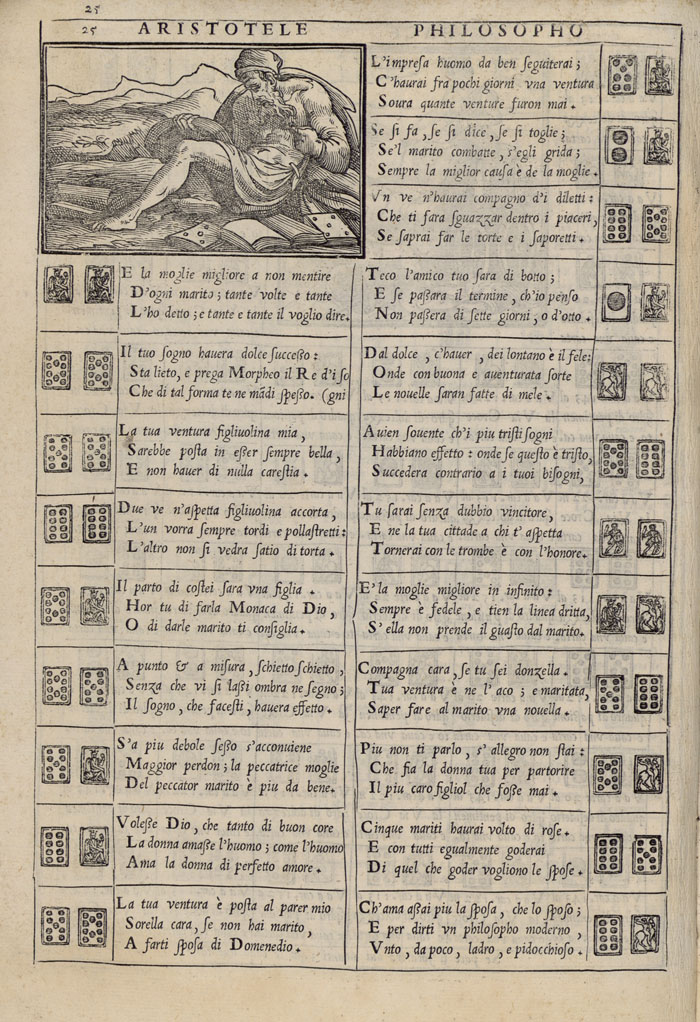 25
25 ARISTOTELE PHILOSOPHO
L'impresa huomo da ben seguiterai;
C'haurai fra pochi giorni vna ventura
Soura quante venture furon mai.
Se si fa, se si dice, se si toglie;
Se'l marito combatte, s'egli grida;
Sempre la miglior causa è de la moglie.
Vn ve n'haurai compagno d'i diletti:
Che ti fara sguazzar dentro i piaceri,
Se saprai far le torte e i saporetti.
E la moglie migliore a non mentire
D'ogni marito; tante volte e tante
L'ho detto; e tante e tante il voglio dire.
Il tuo sogno hauera dolce successo:
Sta lieto, e prega Morpheo il Re d'i so
Che di tal forma te ne mādi spesso. (gni
La tua ventura figliuolina mia,
Sarebbe posta in esser sempre bella,
E non hauer di nulla carestia.
Due ve n'aspetta figliuolina accorta,
L'un vorra sempre tordi e pollastretti:
L'altro non si vedra satio di torta.
Il parto di costei sara vna figlia.
Hor tu di farla Monaca di Dio,
O di darle marito ti consiglia.
A punto & a misura, schietto schietto,
Senza che vi si lassi ombra ne segno;
Il sogno, che facesti, hauera effetto.
S'a piu debole sesso s'acconuiene
Maggior perdon; la peccatrice moglie
Del peccator marito è piu da bene.
Volesse Dio, che tanto di buon core
La donna amasse l'huomo; come l'huomo
Ama la donna di perfetto amore.
La tua ventura è posta al parer mio
Sorella cara, se non hai marito,
A farti sposa di Domenedio.
Teco l'amico tuo sara di botto;
E se passara il termine, ch'io penso
Non passera di sette giorni, o d'otto.
Dal dolce, c'hauer, dei lontano è il fele:
Onde con buona e auenturata sorte
Le nouelle saran fatte di mele.
Auien souente ch'i piu tristi sogni
Habbiano effetto: onde se questo è tristo,
Succedera contrario a i tuoi bisogni,
Tu sarai senza dubbio vincitore,
E ne la tua cittade a chi t'aspetta
Tornerai con le trombe è con l'honore.
E'la moglie migliore in infinito:
Sempre è fedele, e tien la linea dritta,
S'ella non prende il guasto dal marito.
Compagna cara, se tu sei donzella.
Tua ventura è ne l'aco; e maritata,
Saper fare al marito vna nouella.
Piu non ti parlo, s'allegro non stai:
Che fia la donna tua per partorire
Il piu caro figliol che fosse mai.
Cinque mariti haurai volto di rose.
E con tutti egualmente goderai
Di quel che goder vogliono le spose.
Ch'ama assai piu la sposa, che lo sposo;
E per dirti vn philosopho moderno,
Vnto, da poco, ladro, e pidocchioso.